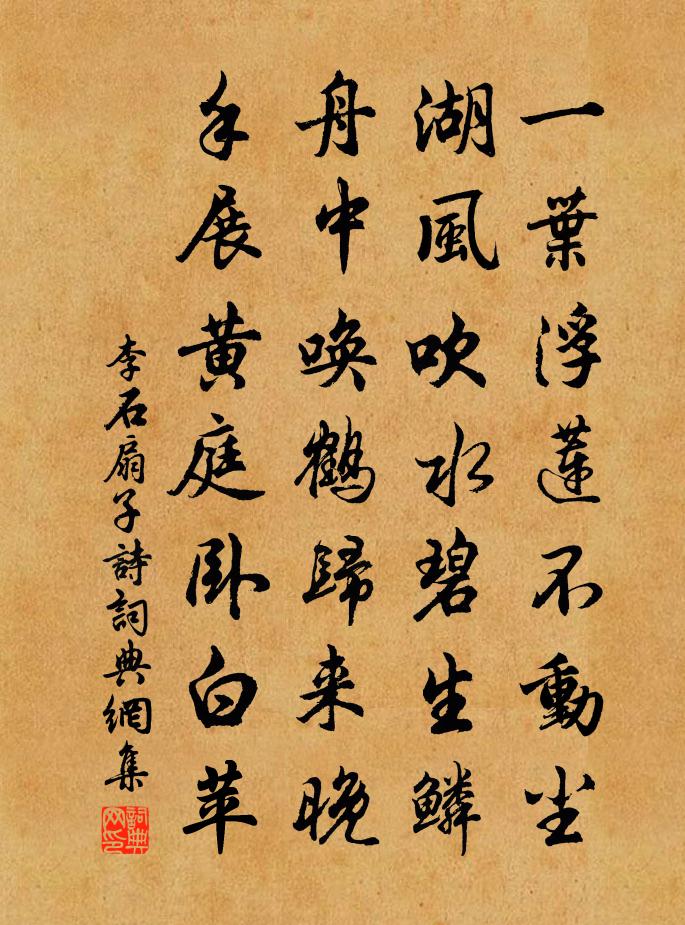 一葉浮蓮不動尘
湖風吹水碧生鱗
舟中喚鶴歸来晚
手展黄庭卧白苹
李石扇子詩詞典網集
詞典網印